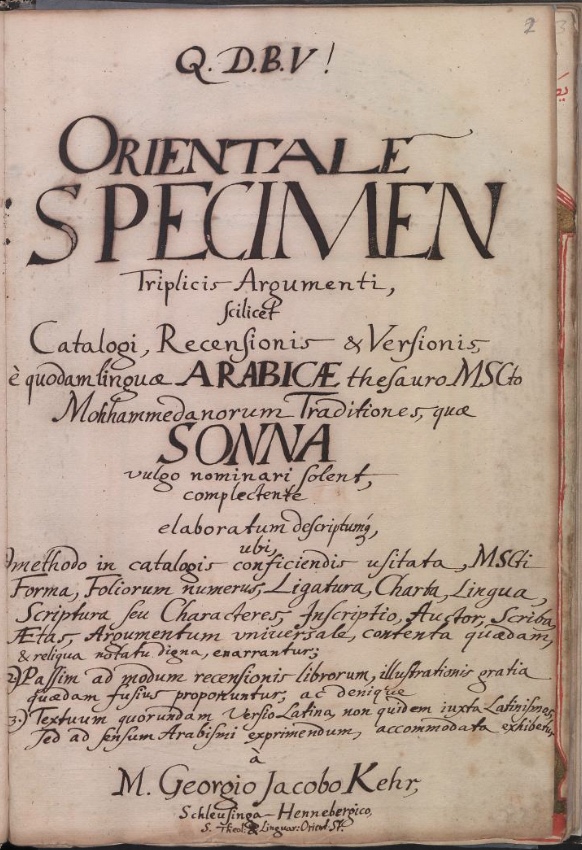 2
Q. D. B. V!
ORIENTALE
SPECIMEN
Triplicis Argumenti,
scilicet
Catalogi, Recensionis & Versionis,
è quodam linguæ ARABICÆ thesauro MSCto
Mohhammedanorum Traditiones, quæ
SONNA
vulgo nominari solent,
complectente
elaboratum descriptumq́;,
ubi,
1) methodo in catalogis conficiendis usitata, MSCti
Forma, Foliorum numerus, Ligatura, Charta, Lingua,
Scriptura seu Characteres, Inscriptio, Auctor, Scriba,
Ætas, Argumentum vniversale, contenta quædam,
& reliqua notatu digna, enarrantur;
2) Passim ad modum recensionis librorum, illustrationis gratia
quædam fusius proponuntur, ac denique
3.) Textuum quorundam Versio Latina, non quidem iuxta Latinismos,
sed ad sensum Arabismi exprimendum, accommodata exhibetur,
à
M. Georgio Jacobo Kehr,
Schleusinga-Hennebergico,
S. Theol: & Linguar: Orient. St.